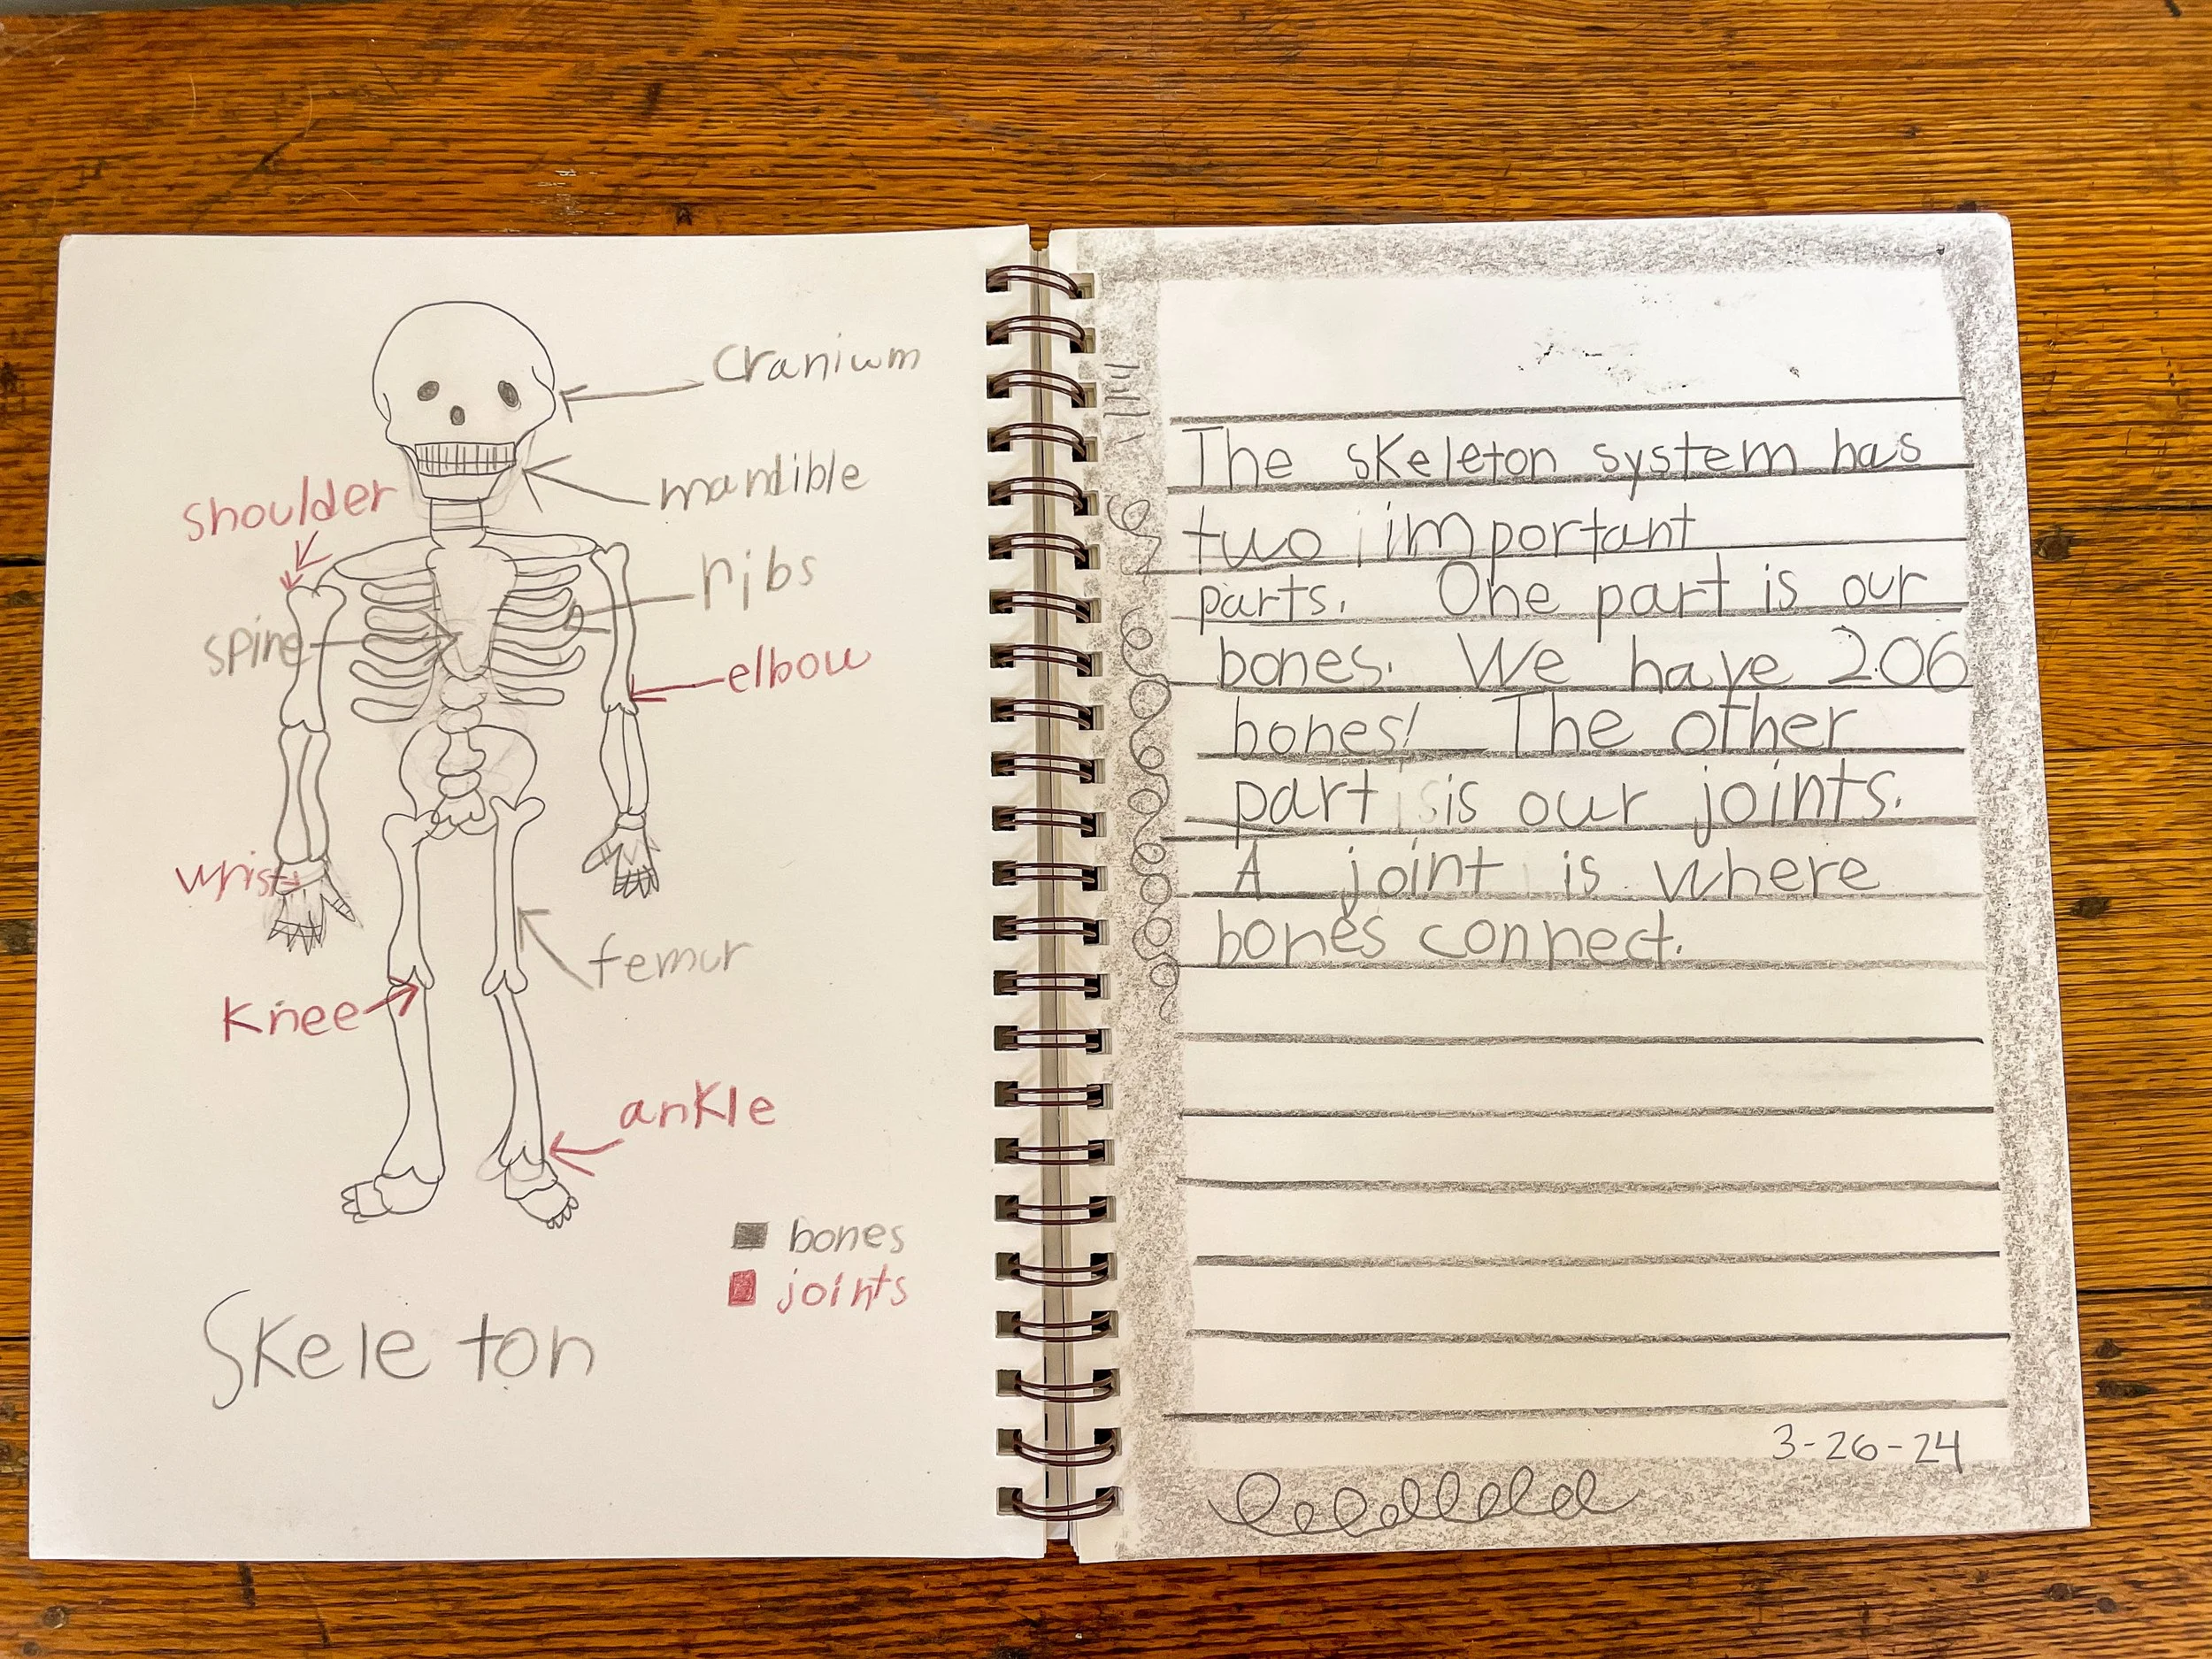 cranium
mandible
shoulder
ribs
spine
elbow
wrist
femur
knee
ankle
bones
joints
Skeleton
The skeleton system has
two important
parts. One part is our
bones. We have 206
bones! The other
part is our joints.
A joint is where
bones connect.
3-26-24